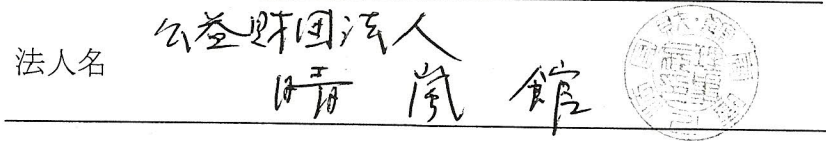 法人名 公益財団法人
晴嵐館